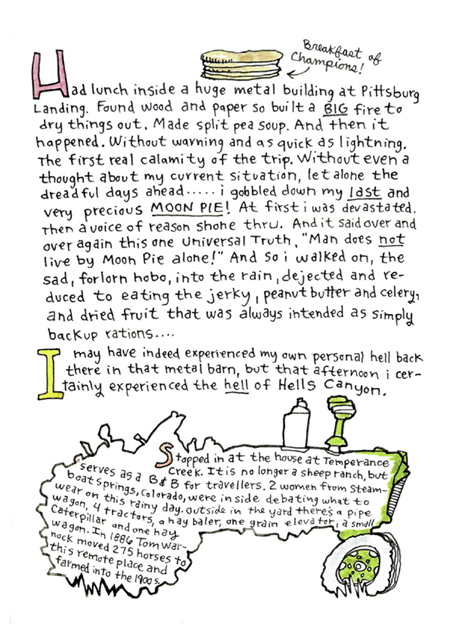 Breakfast of
Champions!
Had lunch inside a huge metal building at Pittsburg
Landing. Found wood and paper so built a BIG fire to
dry things out. Made split pea soup. And then it
happened. Without warning and as quick as lightning.
The first real calamity of the trip. Without even a
thought about my current situation, let alone the
dreadful days ahead..... i gobbled down my last and
very precious MOON PIE! At first i was devastated.
Then a voice of reason shone thru. And it said over and
over again this one Universal Truth, "Man does not
live by Moon Pie alone!" And so i walked on, the
sad, forlorn hobo, into the rain, dejected and re-
duced to eating the jerky, peanut butter and celery,
and dried fruit that was always intended as simply
backup rations....
I may have indeed experienced my own personal hell back
there in that metal barn, but that afternoon i cer-
tainly experienced the hell of Hells Canyon.
Stopped in at the house at Temperance
Creek. It is no longer a sheep ranch, but
serves as a B&B for travellers. 2 women from Steam-
boat Springs, Colorado, were inside debating what to
wear on this rainy day. Outside in the yard there's a pipe
wagon, 4 tractors, a hay baler, one grain elevator, a small
Caterpillar and one hay
wagon. In 1886 Tom War-
nock moved 275 horses to
this remote place and
farmed into the 1900s.